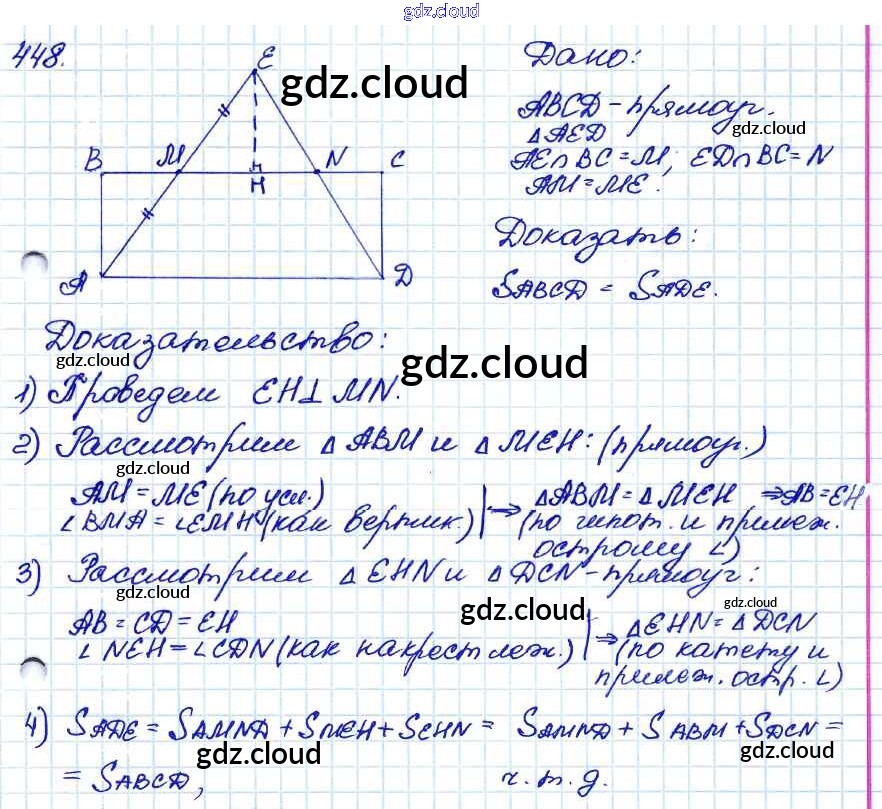 gdz.cloud
448.
E
gdz.cloud
B M N C
H
A D
Дано:
ABCD - прямоуг.
gdz.cloud
△AED
AE∩BC=M; ED∩BC=N
AM=ME.
Доказать:
gdz.cloud
SABCD = SADE.
Доказательство:
gdz.cloud
gdz.cloud
1) Проведем EH⊥MN.
2) Рассмотрим △ABM и △MEH: (прямоуг.)
gdz.cloud
AM=ME (по усл.)
∠BMA=∠EMH (как вертик.) ⇒ △ABM=△MEH ⇒AB=EH
gdz.cloud
(по гипот. и прилеж.
острому ∠)
3) Рассмотрим △EHN и △DCN - прямоуг:
gdz.cloud
gdz.cloud
AB=CD=EH
∠NEH=∠CDN (как накрест леж.) ⇒ △EHN=△DCN
gdz.cloud
(по катету и
прилеж. остр. ∠)
4) SADE = SAMND + SMEH + SEHN = SAMND + SABM + SDCN =
gdz.cloud
gdz.cloud
= SABCD, ч.т.д.
gdz.cloud